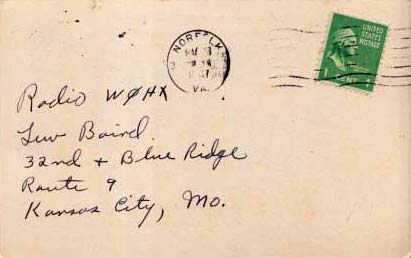 NORFOLK
VA.
UNITED
STATES
POSTAGE
1 CENT 1
Radio WØHX
Lew Baird
32nd + Blue Ridge
Route 9
Kansas City, Mo.